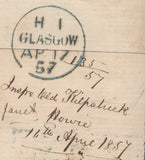 H I
GLASGOW
AP 17
57
185
57
Kilpatrick
Janet Howie
14th April 1857